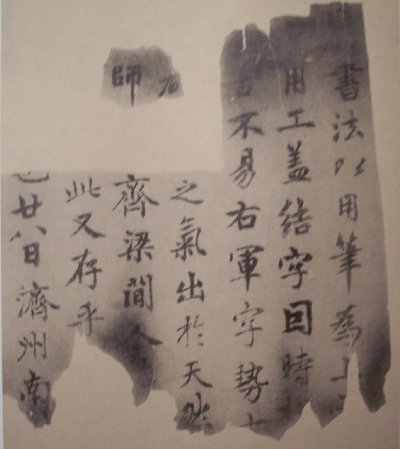 書法以用筆為上
用工盖結字因時
不易右軍字勢
之氣出於天然
師齊梁間人
此又存乎
也廿八日濟州南